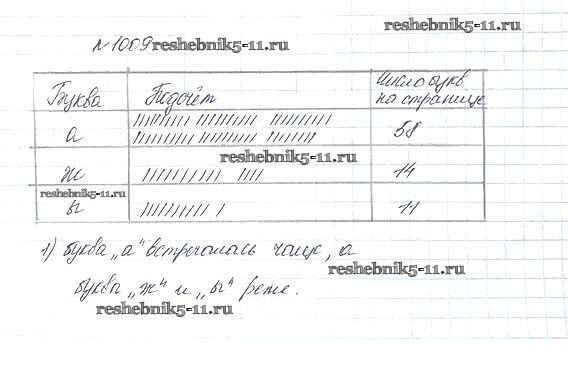 reshebnik5-11.ru
№1009 reshebnik5-11.ru
Буква Подсчёт Число букв на странице
а 58
reshebnik5-11.ru
ж 14
reshebnik5-11.ru
ы 11
1) буква „а" встречалась чаще, а
reshebnik5-11.ru
буквы „ж" и „ы" реже.
reshebnik5-11.ru